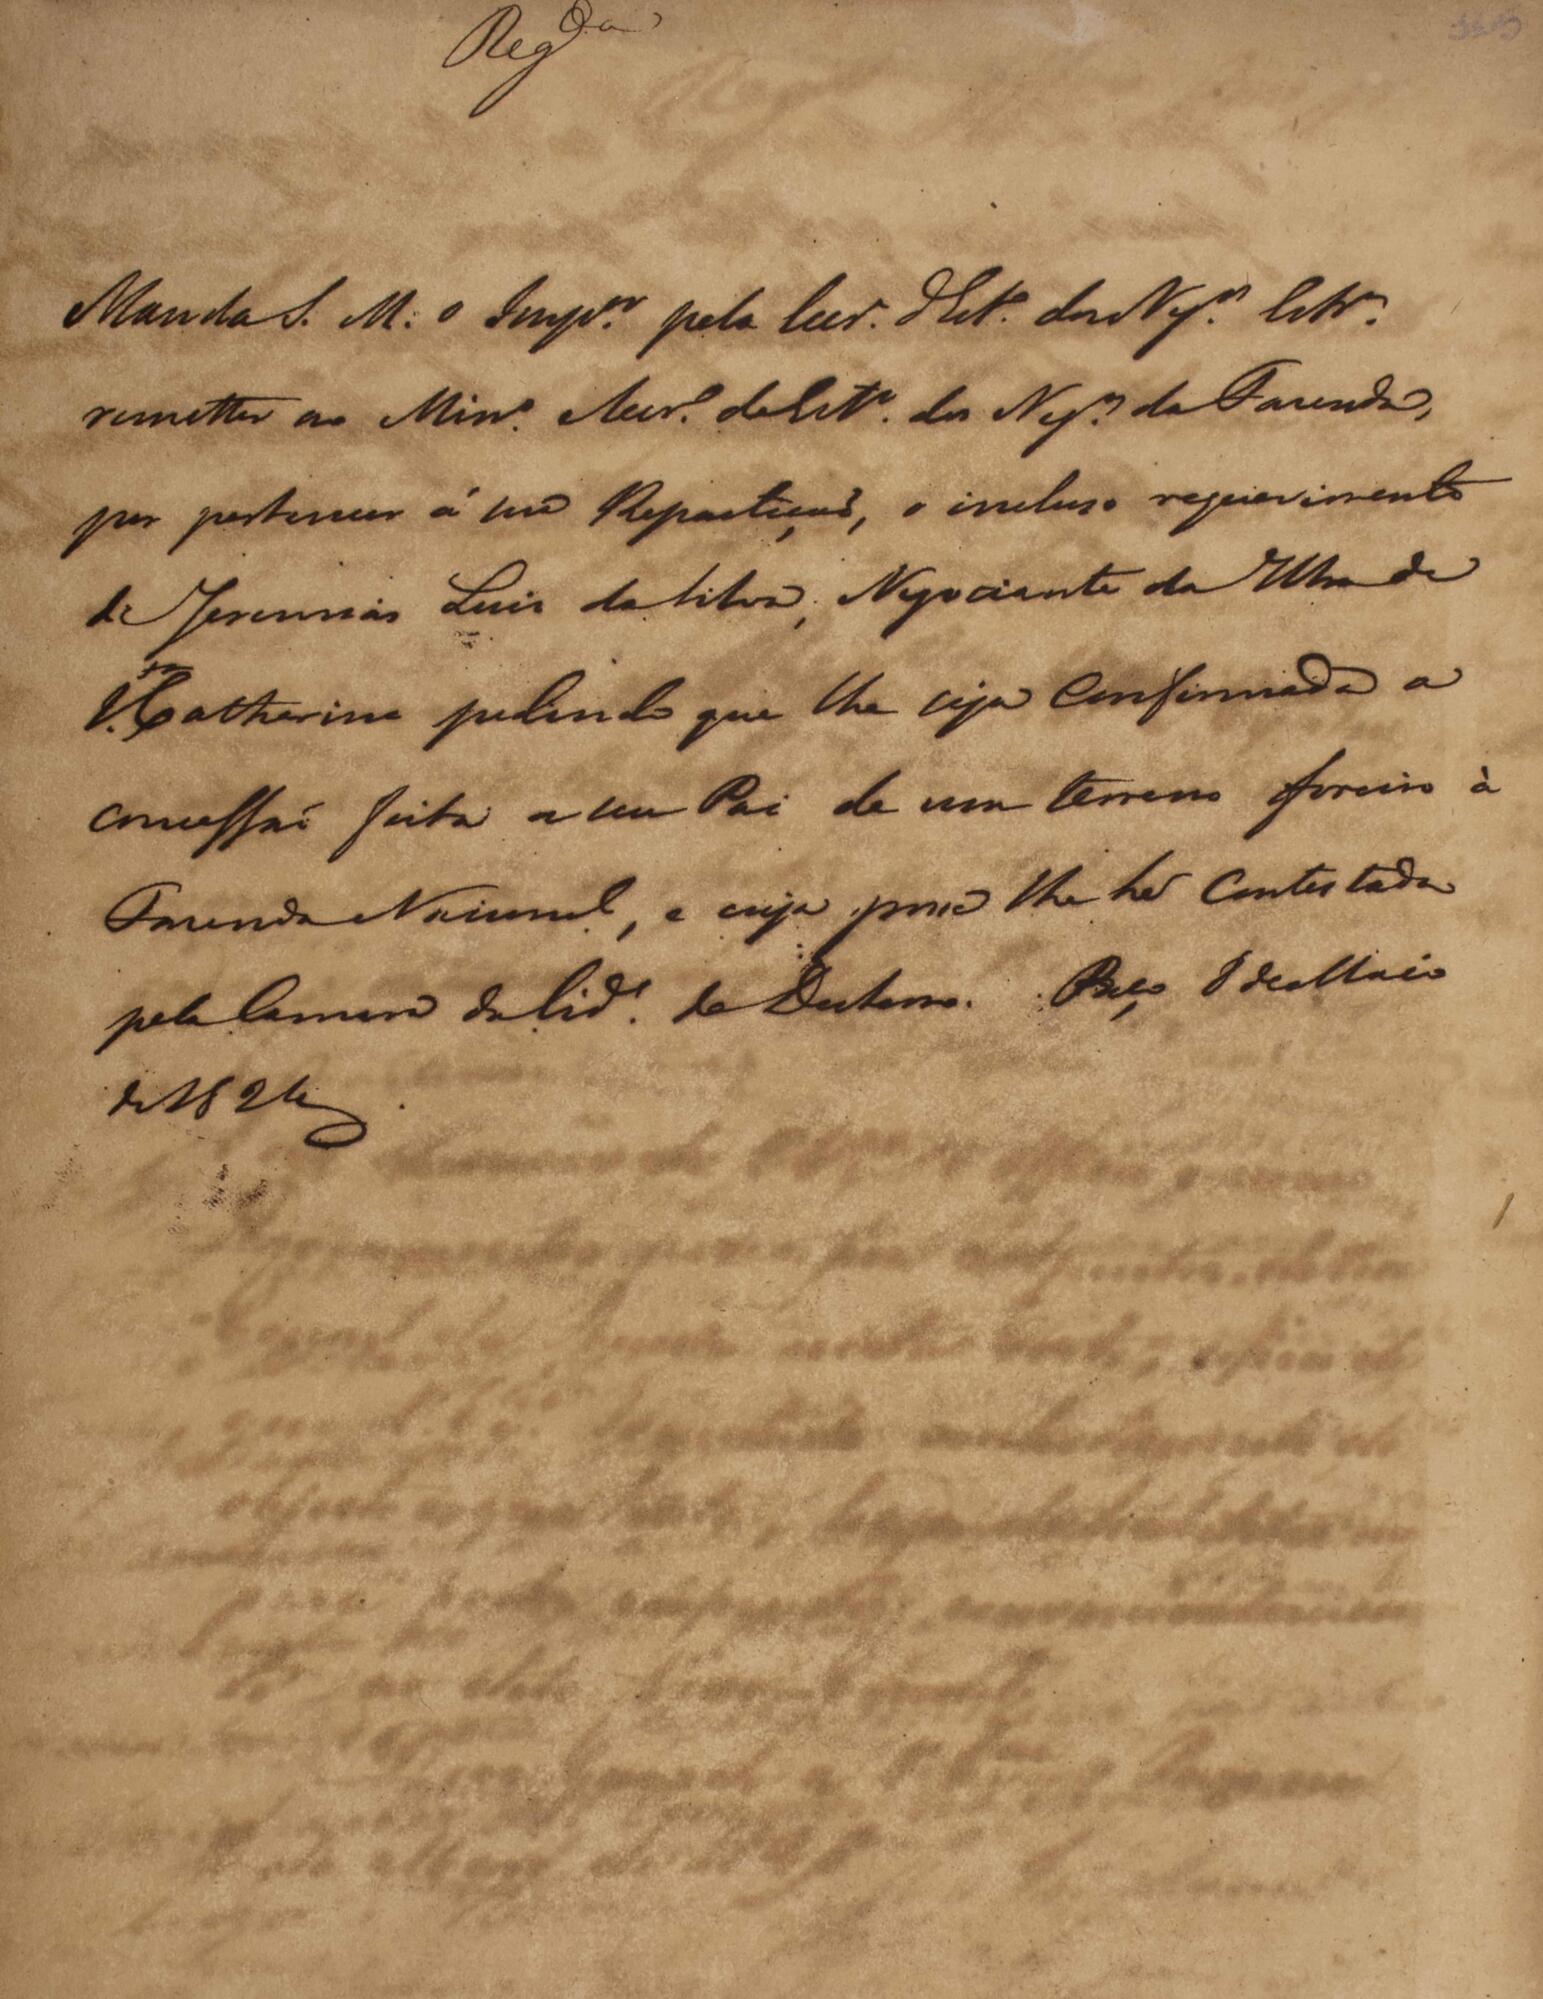 Reg.da
Manda S. M. o Imp.or pela Secr. d'Est.o dos Neg.os Estr.os
remetter ao Min.o e Secr.o de Est.o dos Neg.os da Fazenda,
por pertencer á sua Repartição, o incluso requerimento
de Jeremias Luis da Silva, Negociante da Ilha de
S.ta Catherina pedindo que lhe seja Confirmada a
concessaõ feita a seu Pai de um terreno foreiro à
Fazenda Nacional, e cuja posse lhe he Contestada
pela Camara da Cid.e do Desterro. Paço 8 de Maio
de